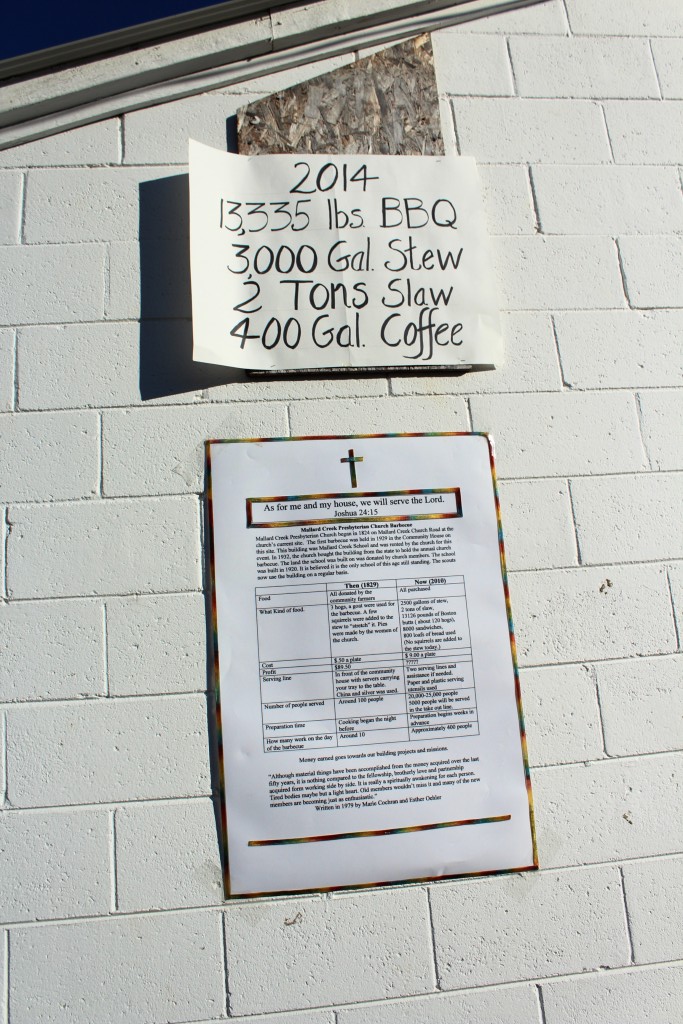 2014
13,335 lbs. BBQ
3,000 Gal. Stew
2 Tons Slaw
400 Gal. Coffee
As for me and my house, we will serve the Lord.
Joshua 24:15
Mallard Creek Presbyterian Church Barbecue
Mallard Creek Presbyterian Church began in 1824 on Mallard Creek Church Road at the
church's current site. The first barbecue was held in 1929 in the Community House on
this site. This building was Mallard Creek School and was rented by the church for this
event. In 1932, the church bought the building from the state to hold the annual church
barbecue. The land the school was built on was donated by church members. The school
was built in 1920. It is believed it is the only school of this age still standing. The scouts
now use the building on a regular basis.
Then (1829) Now (2010)
Food All donated by the All purchased
community farmers
What Kind of food. 3 hogs, a goat were used for 2500 gallons of stew,
the barbecue. A few 2 tons of slaw,
squirrels were added to the 15126 pounds of Boston
stew to "stretch" it. Pies butts ( about 120 hogs),
were made by the women of 8000 sandwiches,
the church. 800 loafs of bread used
(No squirrels are added to
the stew today.)
Cost $.50 a plate $ 9.00 a plate
Profit $89.50 ?????
Serving line In front of the community Two serving lines and
house with servers carrying assistance if needed.
your tray to the table. Paper and plastic serving
China and silver was used. utensils used
Number of people served Around 100 people 20,000-25,000 people
5000 people will be served
in the take out line.
Preparation time Cooking began the night Preparation begins weeks in
before advance
How many work on the day Around 10 Approximately 400 people
of the barbecue
Money earned goes towards our building projects and missions.
"Although material things have been accomplished from the money acquired over the last
fifty years, it is nothing compared to the fellowship, brotherly love and partnership
acquired form working side by side. It is really a spiritually awakening for each person.
Tired bodies maybe but a light heart. Old members wouldn't miss it and many of the new
members are becoming just as enthusiastic."
Written in 1979 by Marie Cochran and Esther Oehler